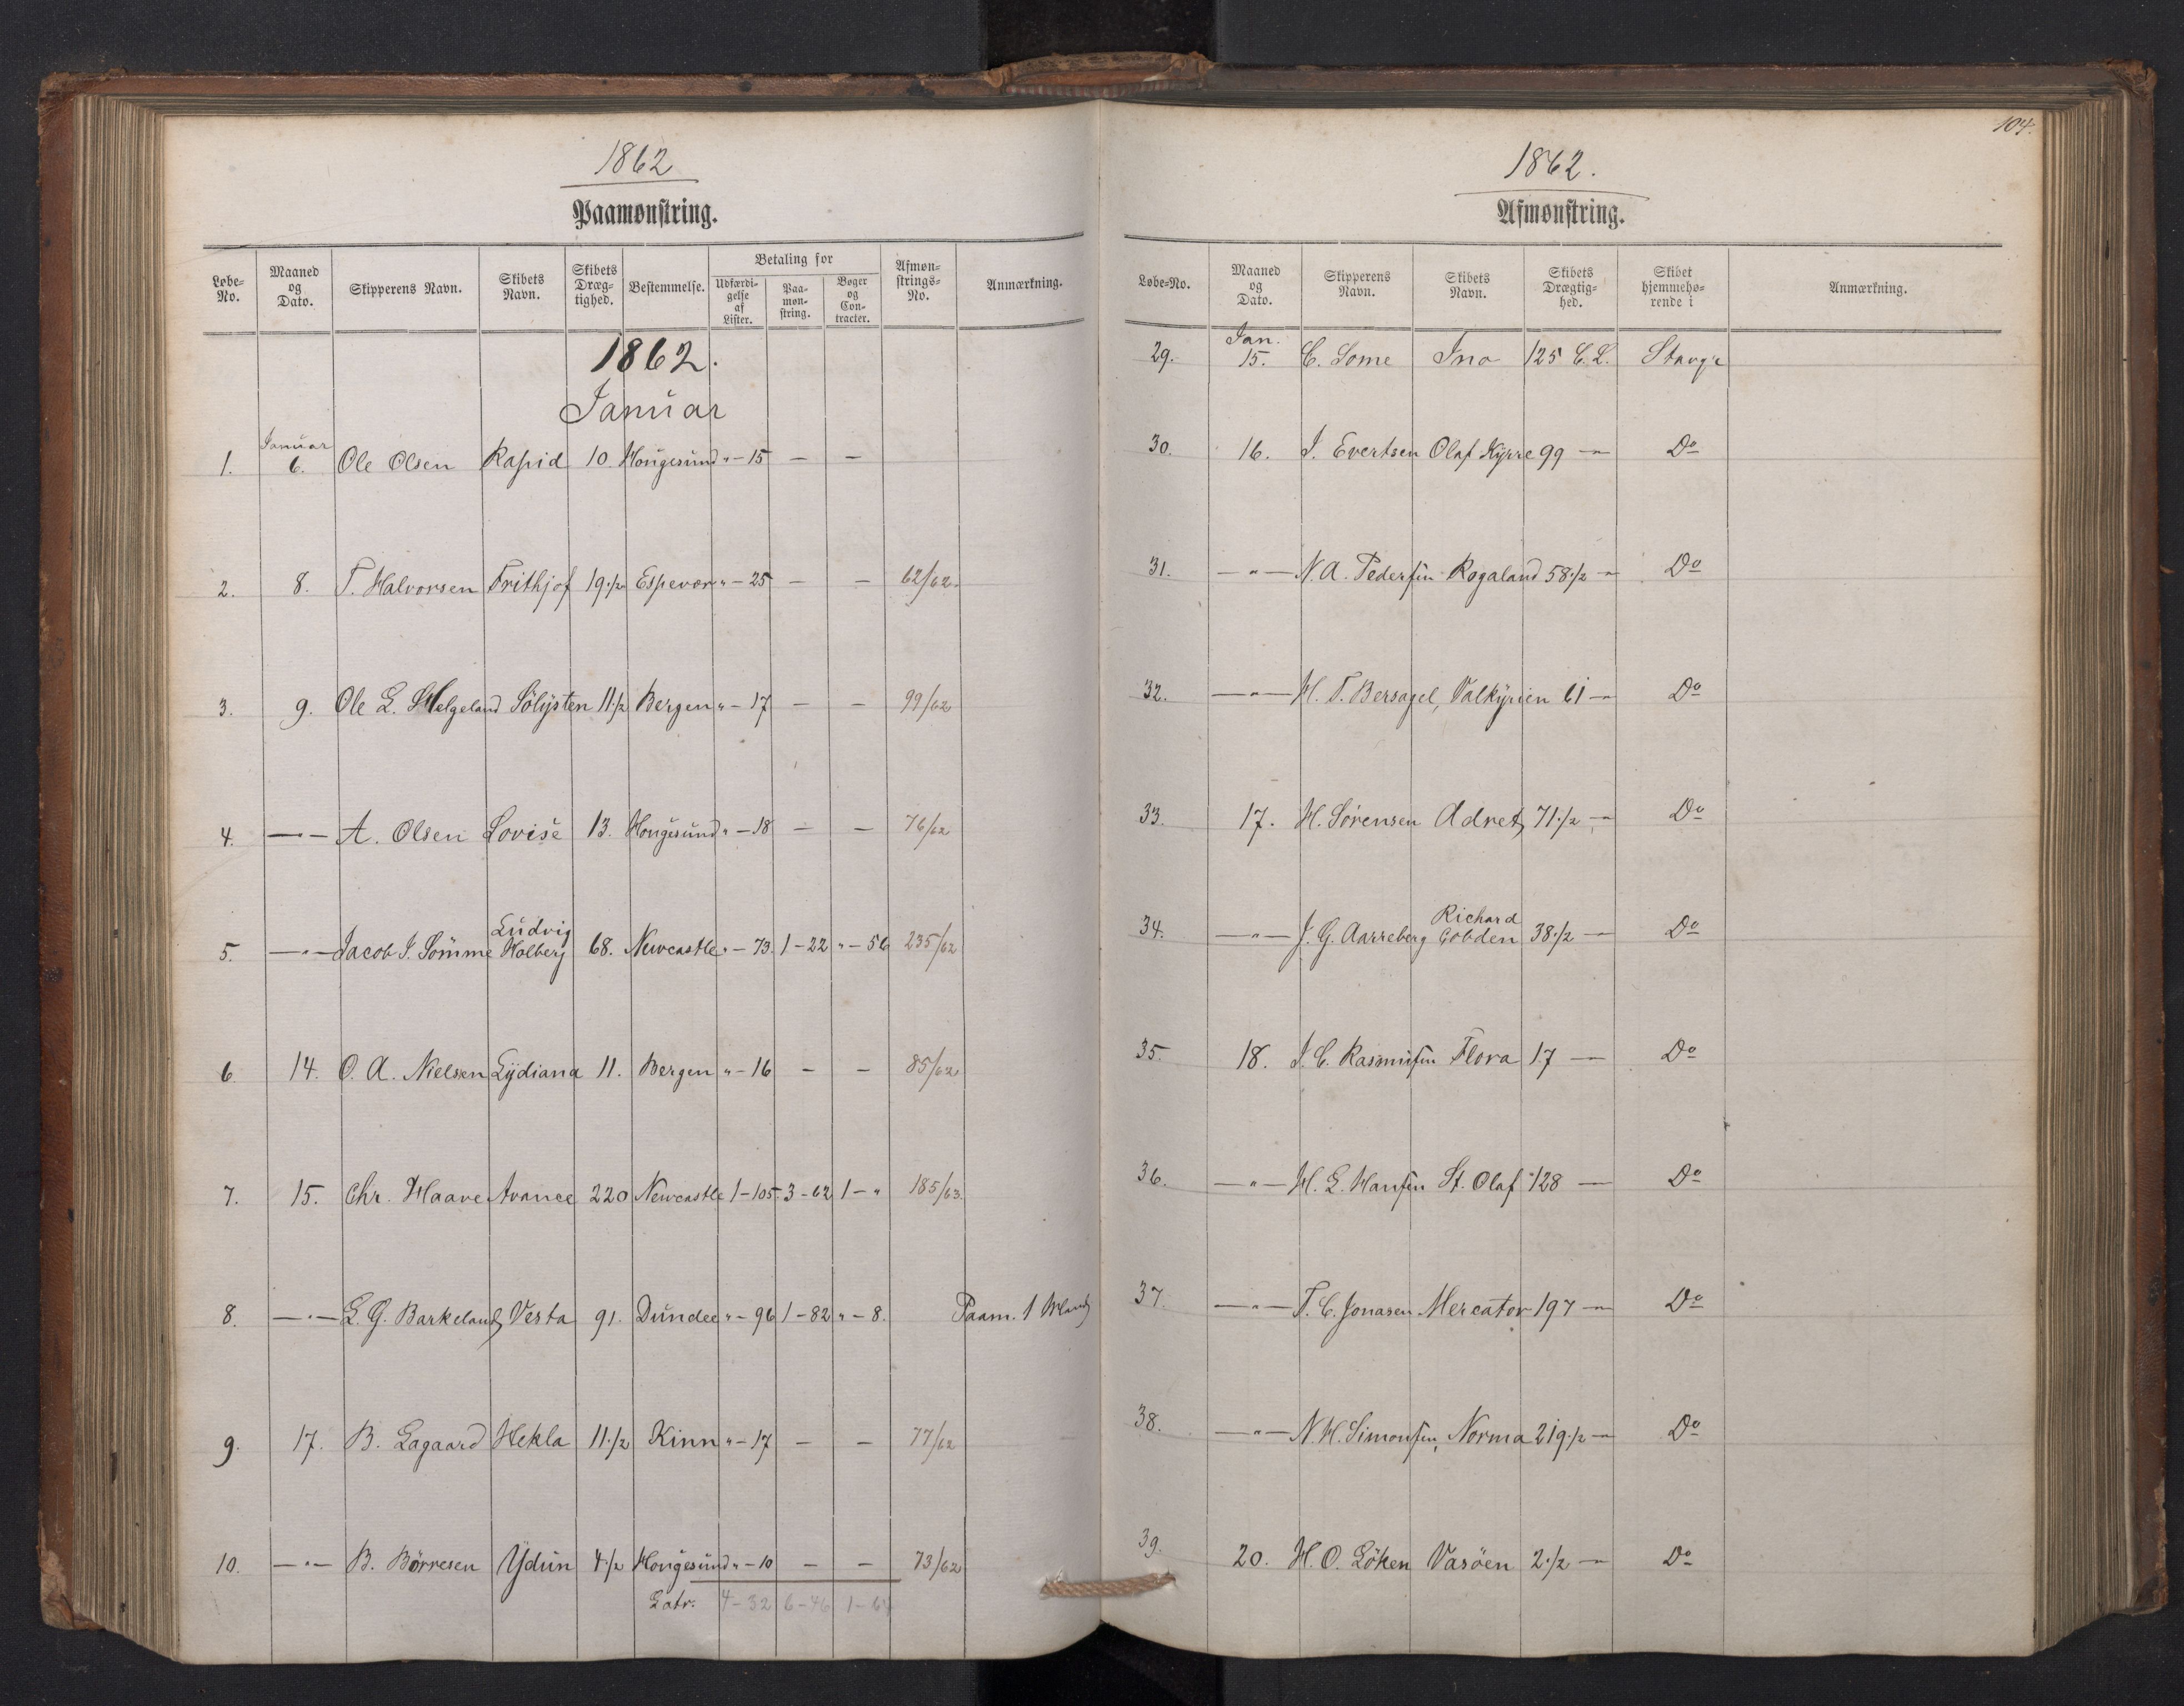 1862
Paamønstring.
Løbe-No. Maaned og Dato. Skipperens Navn. Skibets Navn. Skibets Dræg-tighed. Bestemmelse. Betaling for Udfærdi-gelse af Lister. Paa-møn-string. Bøger og Con-tracter. Afmøn-strings-No. Anmærkning.
1862.
Januar
1. Januar 6. Ole Olsen Rapid 10. Hougesund " - 15 - -
2. 8. T. Halvorsen Frithjof 19 1/2 Espevær " - 25 - - 62/62.
3. 9. Ole L. Helgeland Sölysten 11 1/2 Bergen " - 17 - - 99/62
4. - " - A. Olsen Lovise 13. Hougesund " - 18 - - 76/62
5. - " - Jacob J. Sömme Ludvig Holberg 68. Newcastle " - 73. 1 - 22 " - 56 235/62
6. 14. O. A. Nielsen Lydiana 11. Bergen " - 16 - - 85/62
7. 15. Chr. Haave Avance 220 Newcastle 1 - 105. 3 - 62 1 - " 185/63.
8. - " - L. G. Barkeland, Vesta 91. Dundee " - 96 1 - 82 " - 8. Paam. 1 Mand
9. 17. B. Lagaard Hekla 11 1/2 Kinn " - 17 - - 77/62
10. - " - B. Börresen Ydun 4 1/2 Hougesund " - 10 - - 73/62
Latr. 4 - 32 6 - 46 1 - 64
104.
1862.
Afmønstring.
Løbe-No. Maaned og Dato. Skipperens Navn. Skibets Navn. Skibets Drægtig-hed. Skibet hjemmehø-rende i Anmærkning.
29. Jan. 15. C. Some Ino 125 C. L. Stavgr
30. 16. J. Evertsen Olaf Kyrre 99 - " - Do
31. - " - N. A. Pedersen Rogaland 58 1/2 - " - Do
32. - " - H. T. Bersagel, Valkyrien 61 - " - Do
33. 17. H. Sörensen Adret, 71 1/2 - " - Do
34. - " - J. G. Aarreberg Richard Cobden 38 1/2 - Do
35. 18. J. C. Rasmusen Flora 17 - Do
36. - " - H. L. Hansen St. Olaf 128 - Do
37. - " - T. C. Jonasen Mercator 197 - " - Do
38. - " - N. H. Simonsen, Norma 219 1/2 - " - Do
39. 20. H. O. Löken Vasöen 2 1/2 - " - Do